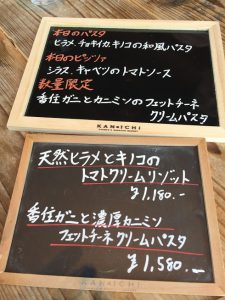 本日のパスタ
ヒラメ、チョキイカ、キノコの和風パスタ
本日のピッツァ
シラス、キャベツのトマトソース
数量限定
香住ガニとカニミソのフェットチーネ
クリームパスタ
KANICHI
天然ヒラメとキノコの
トマトクリームリゾット
¥1,180.-
香住ガニと濃厚カニミソ
フェットチーネクリームパスタ
¥1,580.-
KANICHI